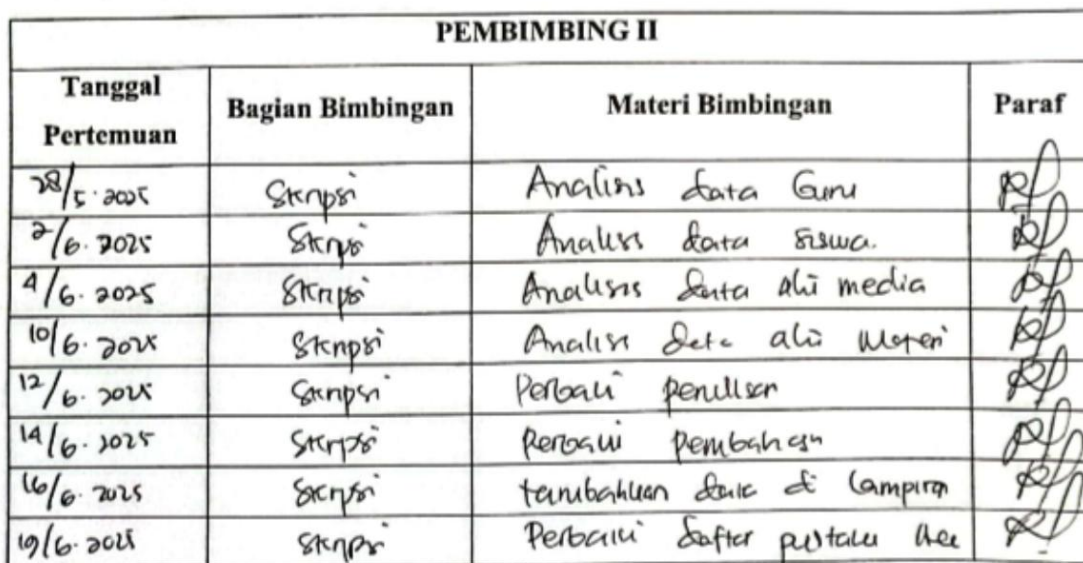 PEMBIMBING II
Tanggal Pertemuan Bagian Bimbingan Materi Bimbingan Paraf
28/5. 2025 Skripsi Analisis data Guru
2/6. 2025 Skripsi Analisis data siswa.
4/6. 2025 Skripsi Analisis data ahli media
10/6. 2025 Skripsi Analisis data ahli Materi
12/6. 2025 Skripsi Perbaiki penulisan
14/6. 2025 Skripsi Perbaiki pembahasan
16/6. 2025 Skripsi tambahkan data di lampiran
19/6. 2025 Skripsi Perbaiki daftar pustaka